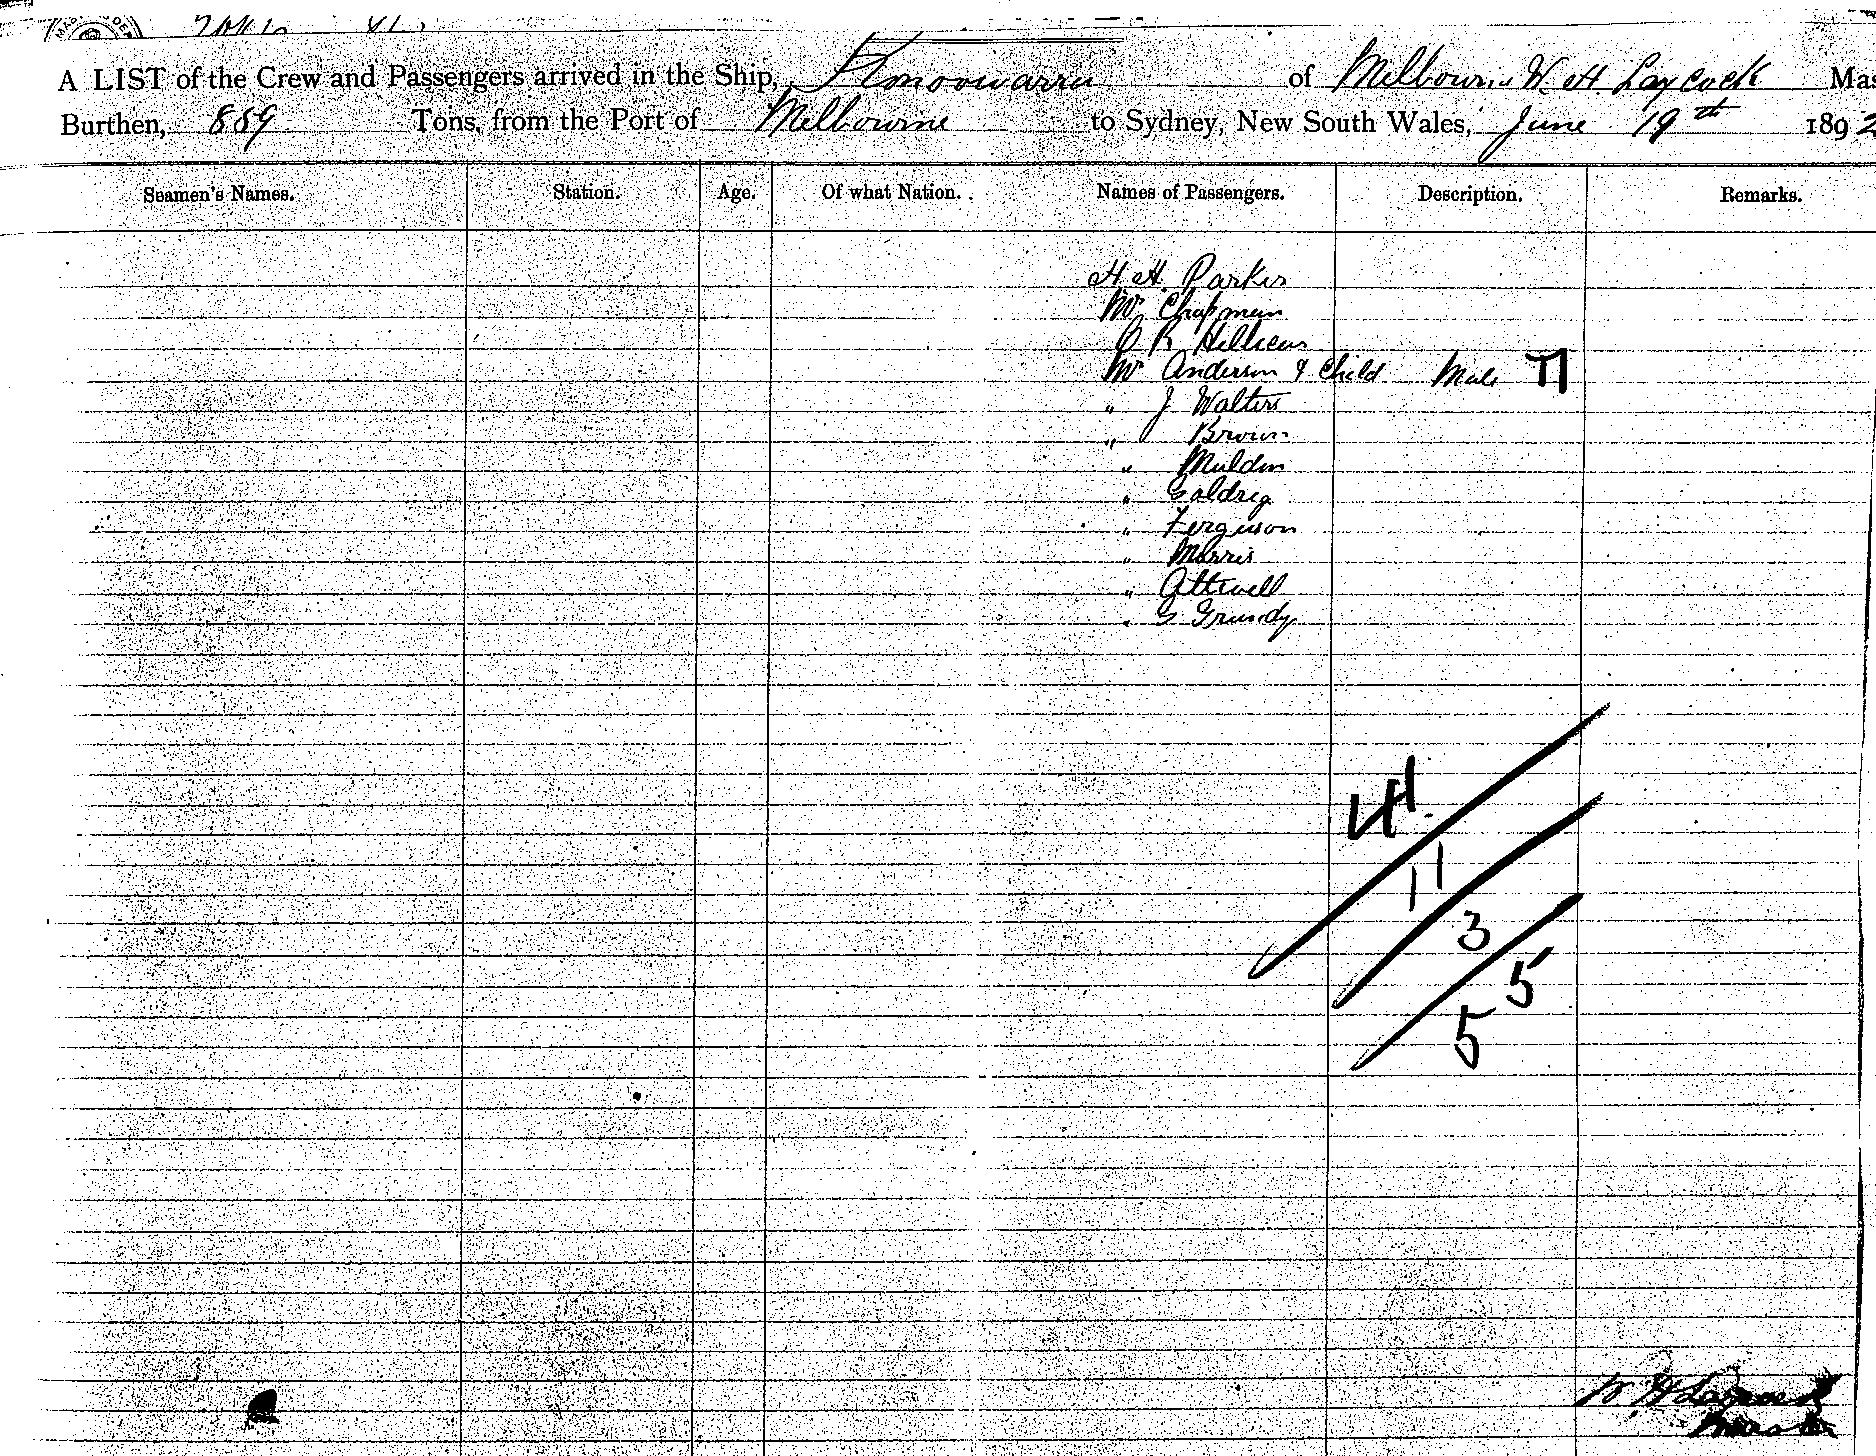 A LIST of the Crew and Passengers arrived in the Ship, of Melbourne W. H. Laycock Mas
Burthen, 889 Tons, from the Port of Melbourne to Sydney, New South Wales, June 19th 1892
Seamen's Names. Station. Age. Of what Nation. Names of Passengers. Description. Remarks.
H. H. Parker
Mr Chapman
R
Mr Anderson & Child Male
" J Walters
" Brown
"
" Goldreg
" Ferguson
" Morris
" Attwell
" G Grundy
4 1
1 1
3
5 5
W H Laycock
Master